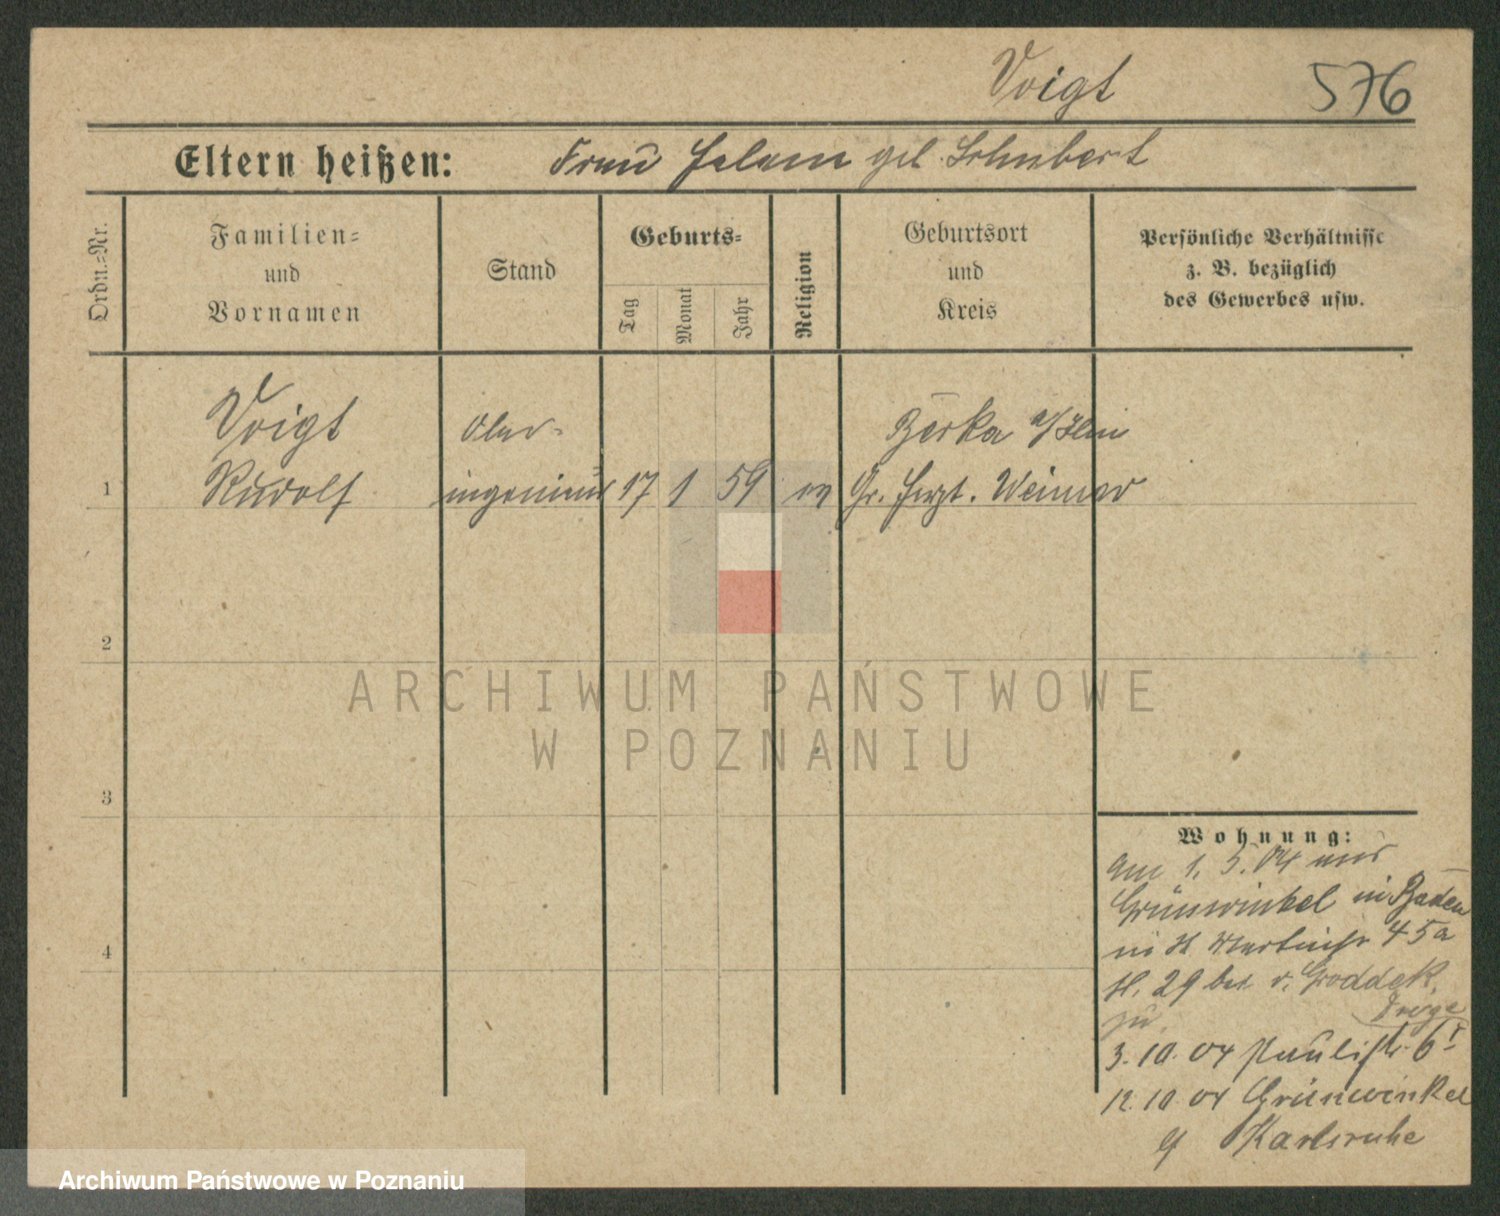 Voigt
576
Eltern heißen: Frau Helene geb. Schubert
Ordn.-Nr.
Familien-
und
Vornamen
Stand
Geburts-
Tag
Monat
Jahr
Religion
Geburtsort
und
Kreis
Persönliche Verhältnisse
z. B. bezüglich
des Gewerbes usw.
Voigt
Ober-
Berka a/Ilm
1
Rudolf
ingenieur
17
1
59
ev
Gr. Herzt. Weimar
2
ARCHIWUM PAŃSTWOWE
W POZNANIU
3
Wohnung:
am 1. 5. 04 aus
Grünwinkel in Baden
in St Martinstr 45a
H. 29 bei v. Groddek,
zu
3. 10. 04 Paulistr. 6 I
12. 10. 04 Grünwinkel
Karlsruhe
4
Archiwum Państwowe w Poznaniu